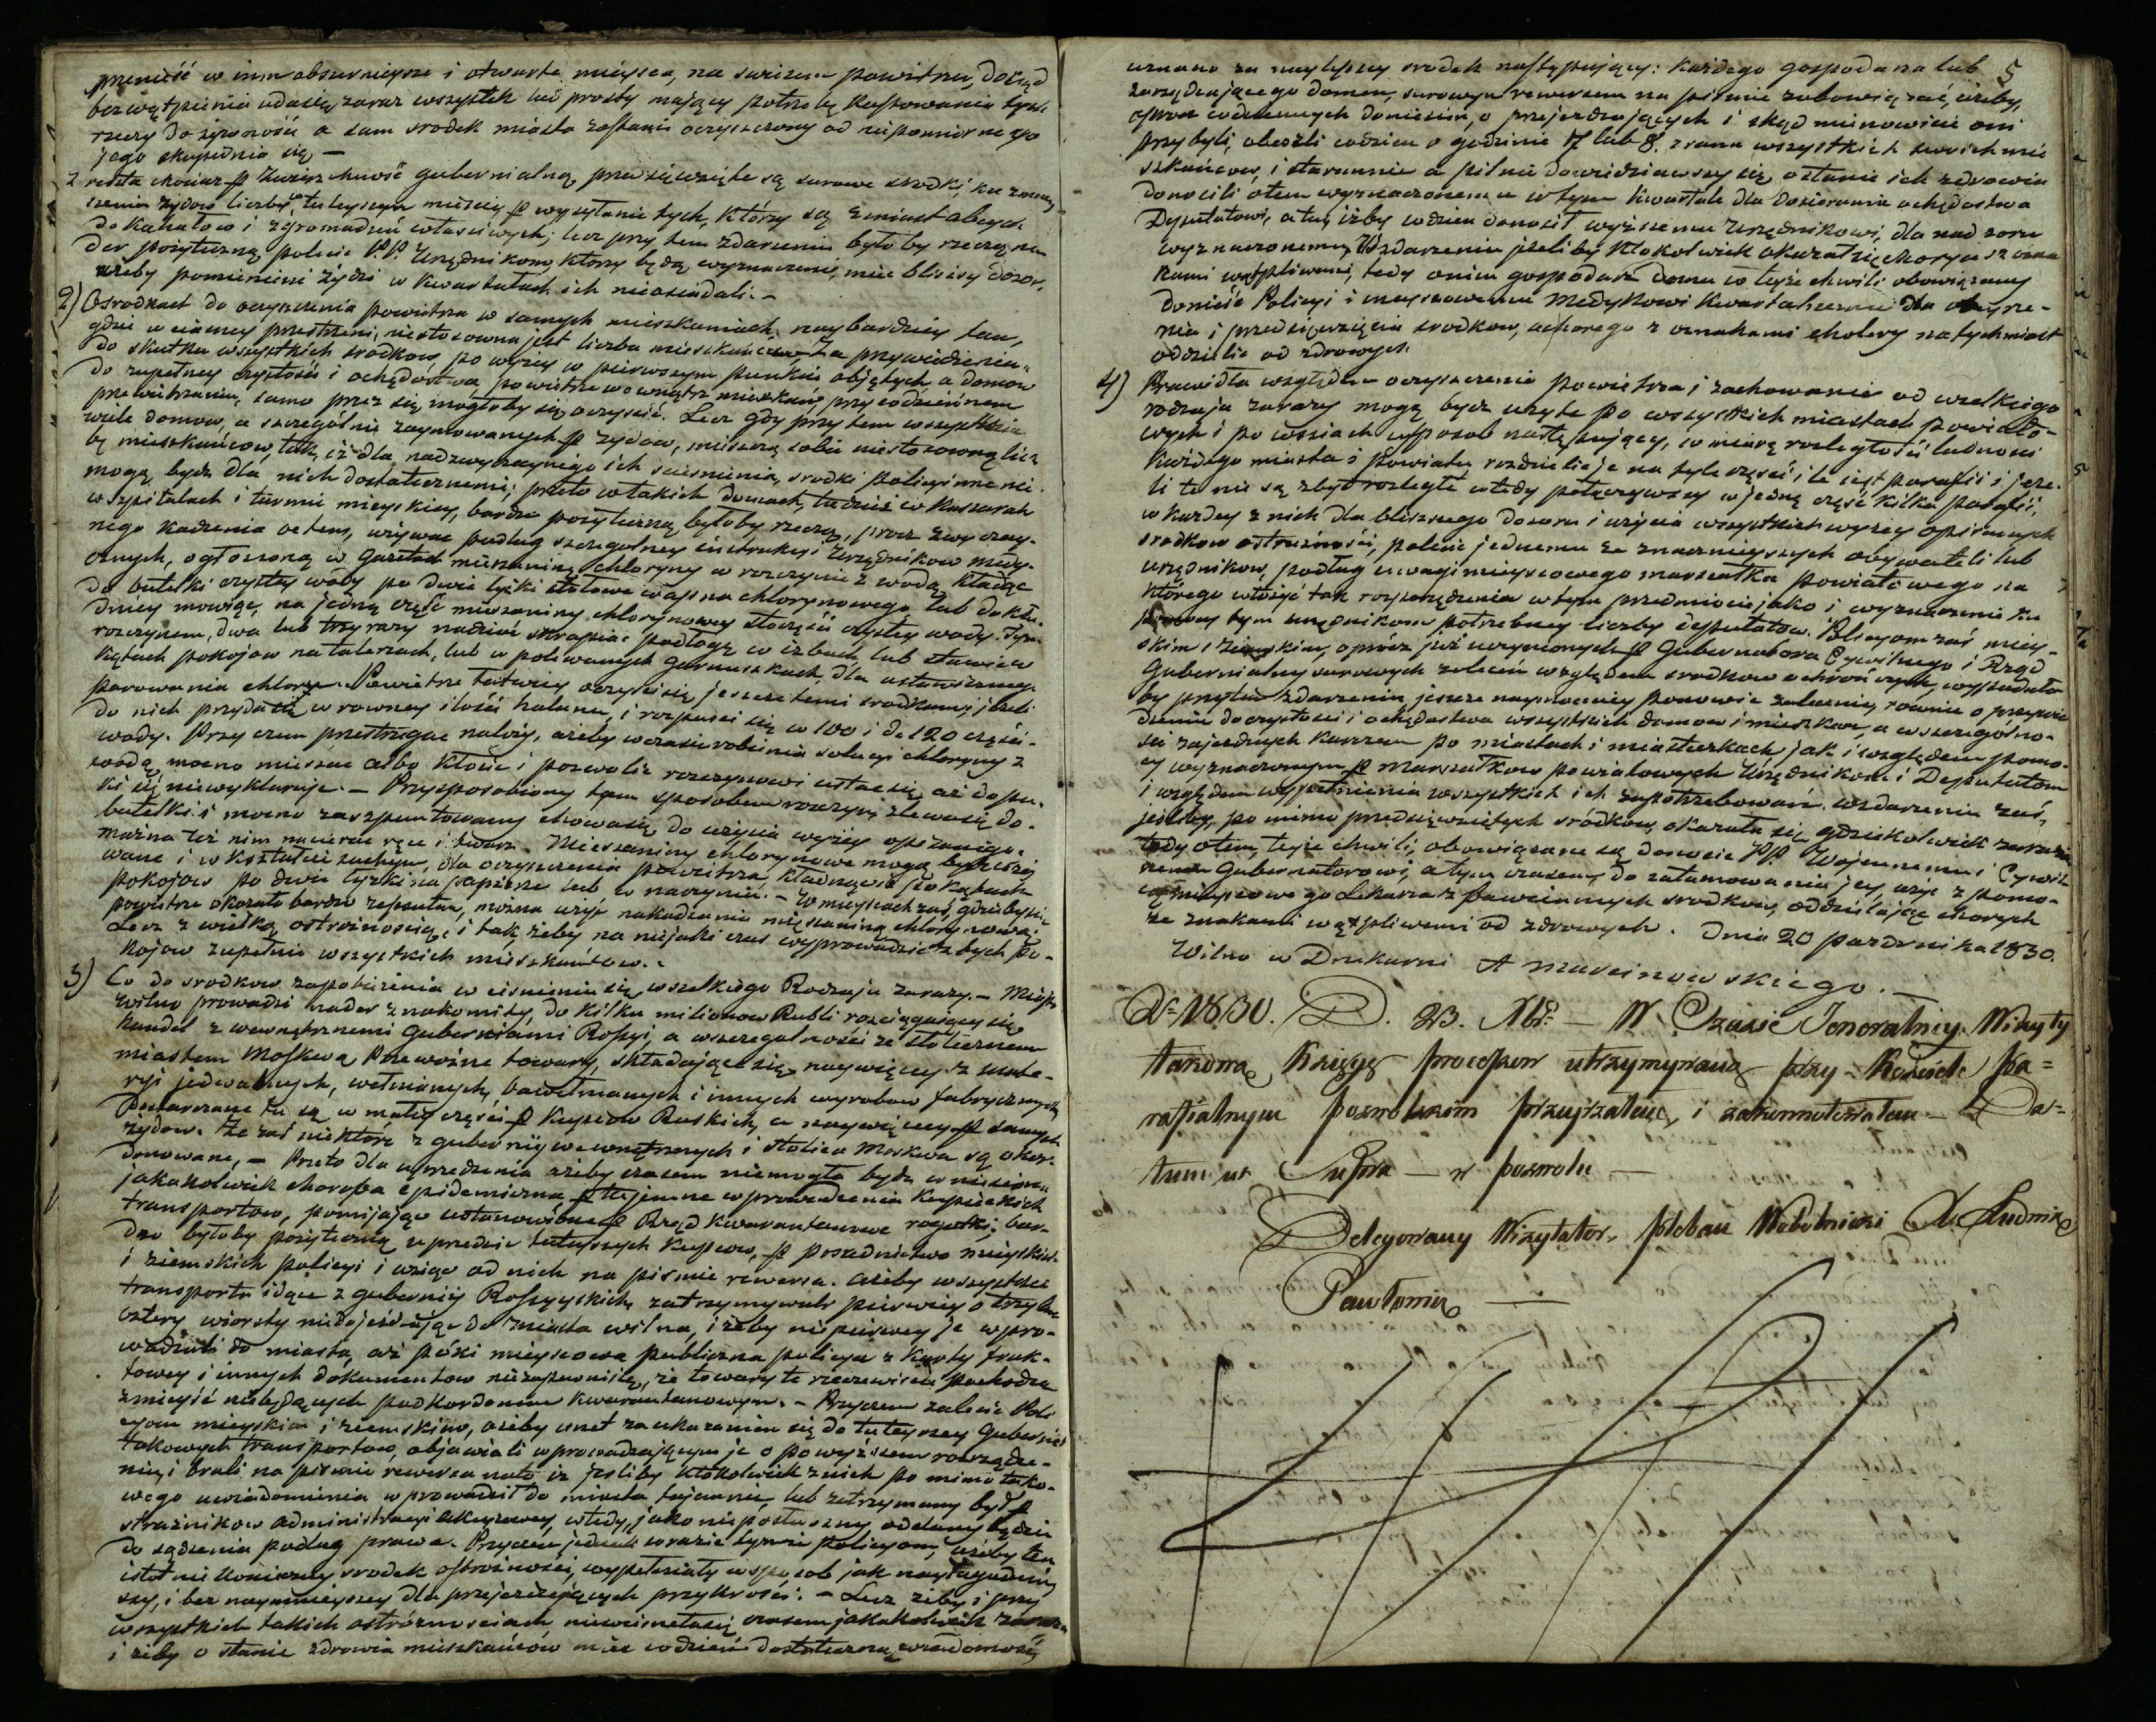 przenieść w inne obszerniejsze i otwarte mieysca, na swieżem powietrzu, dokąd
bez wątpienia uda się zaraz wszystek lud prosty mający potrzebę kupowania tych
rzeczy do żywności a sam srodek miasta zostanie oczyszczony od niepomiernego
jego skupienia się —
z reszta chociaż p zwierzchność gubernialną przedsięwzięte są surowe srodki ku zmniey
szeniu żydow liczby w tuteyszym mieście p wysyłanie tych, którzy są z miast obcych
do kahałow i zgromadzeń właściwych; lecz przy tem zdarzeniu było by rzeczą na
der pożyteczną polecić P.P. Urzędnikom, ktorzy będą wyznaczeni, mieć bliższy dozor,
ażeby pomienieni żydzi w kwartałach ich nieosiadali. —
2) O srodkach do oczyszczenia powietrza w samych mieszkaniach, naybardziey tam,
gdzie w ciasney przestrzeni, niestosowna jest liczba mieszkańcow. Za przywiedzeniem
do skutku wszystkich srodkow, po wyżey w pierwszym punkcie objętych a domow
do zupełney czystości i ochędostwa powietrze wewnątrz mieszkań przy codziennem
przewietrzaniu, samo przez się mogłoby się oczyścić. Lecz gdy przy tem wszystkiem
wiele domow, a szczególnie zaymowanych p żydow, mieszczą w sobie niestosowną licz
bę mieszkańcow, tak, iż dla nadzwyczaynego ich ściśnienia, srodki policyine nie
mogą bydz dla nich dostatecznemi; przeto w takich domach, tudzież w koszarach
w szpitalach i turmie mieyskiey, bardzo pożyteczną byłoby rzeczą, procz zwyczay-
nego kadzenia octem, używac podług szczegolney instrukcyi Urzędnikow medy-
cznych, ogłoszoną w gazetach mieszaninę chloryny w rozczynie z wodą kładąc
do butelki czystey wody po dwie łyżki stołowe wapna chlorynowego lub dokła-
dniey mowiąc, na jedną część mieszaniny chlorynowey sto części czystey wody. Tym
rozczynem, dwa lub trzy razy na dzień skrapiac podłogę w izbach lub stawiać w
kątach pokojow na talerzach, lub w polewanych garnuszkach, dla ustawicznego
parowania chloru. Powietrze łatwiey oczyści się jeszcze temi srodkami, jeżeli
do nich przydać w rowney ilości hałunu, i rozpuści się w 100 i do 120 części
wody. Przy czem przestrzegac należy, ażeby w czasie robienia solucyi chloryny z
wodą, mocno mieszac albo kłócić i pozwolić rozczynowi ustać się, aż do pu-
ki się niewyklaruje. — Przysposobiony tym sposobem rozczyn, zlewa się do
butelki i mocno zaszpuntowany chowa się do użycia wyżey opisanego.
można też nim nacierac ręce i twarz. Mieszaniny chlorynowe mogą bydz uży
wane i w kształcie suchym, dla oczyszczenia powietrza kładnąc po kątach
pokojow po dwie łyżki na papierze lub w naczyniu. — W mieyscach zaś, gdzieby się
powietrze okazało bardzo zepsutem, można użyć nakadzania mieszaniną chlorynową;
Lecz z wielką ostrożnością, i tak, żeby na niejaki czas wyprowadzić z tych po-
kojow zupełnie wszystkich mieszkańcow. —
3) Co do srodkow zapobieżenia w ciśnieniu się wszelkiego Rodzaju zarazy. — Miasto
Wilno prowadzi nader znakomity, do kilku milionow Rubli rozciągający się
handel z wewnętrznemi Guberniami Rossyi, a w szczegolności ze stołecznem
miastem Moskwą Przewoźne towary, składające się naywięcey z mate-
ryi jedwabnych, wełnianych, bawełnianych i innych wyrobow fabrycznych
Dostarczane tu są w małey części p Kupcow Ruskich, a naywięcey p samych
żydow. Że zaś niektóre z guberniy wewnętrznych i stolica Moskwa są okor-
donowane, — Przeto dla uprzedzenia ażeby czasem niemogła bydz wniesiona
jakakolwiek choroba epidemiczna p tajemne wprowadzenia kupieckich
transportow, pomijając ustanowione p Rząd kwarantannowe rogatki, bar-
dzo byłoby pożyteczną uprzedzić tuteyszych kupcow, p posrednictwo mieyskiey
i ziemskich policyi i wziąć od nich na pismie rewersa. ażeby wszystkie
transporta idące z guberniy Rossyyskich, zatrzymywali pierwiey o trzy lub
cztery wiorsty niedojeżdżając do miasta wilna, i żeby niepierwey je wpro-
wadzali do miasta, aż póki mieyscowa publiczna policya z karty trak-
towey i innych dokumentow niezapewni się, że towary te rzeczywiście pochodzą
z mieysć niebędących pod kordonem kwarantanowym. — Przyczem zalecić Poli
cyom mieyskim i ziemskim, ażeby wnet za ukazaniem się do tuteyszey Gubernii
takowych transportow, objawiali wprowadzającym je o powyższem rozrządze-
niu, i brali na pismie rewersa na to iż jesliby ktokolwiek z nich po mimo tako-
wego uwiadomienia wprowadził do miasta tajemnie, lub zatrzymany był p
strażnikow administracyi akcyzowey, wtedy, jako nieposłuszny oddany będzie
do sądzenia podług prawa. Przyczem jednak wrazić tymże policyom, ażeby ten
istotnie konieczny srodek ostrożności, wypełniały w sposob jak nayłagodniey
szy, i bez naymnieyszey dla przejeżdżających przykrości. — Lecz żeby i przy
wszystkich takich ostrożnościach, niewcisnęła się czasem jakakolwiek zaraza
i żeby o stanie zdrowia mieszkańców mieć codzień dostateczną wiadomość,
5
uznano za naylepszy srodek następujący: każdego gospodarza lub
zarządzającego domem, surowym rewersem na pismie zobowiązać, ażeby,
oprocz codziennych doniesień, o przejeżdzających i skąd mianowicie oni
przybyli, obeszli codzien o godzinie 7 lub 8. z rana wszystkich swoich mie
szkańcow, i starannie a pilnie dowiedziawszy się o stanie ich zdrowia
donosili o tem wyznaczonemu w tym kwartale dla dozierania ochędostwa
Deputatowi, a ten, iżby codzien donosił wyższemu Urzędnikowi, dla nad zoru
wyznaczonemu, W zdarzeniu jeżeliby ktokolwiek okazał się chorym z ozna
kami wątpliwemi, tedy oniem gospodarz domu w teyże chwili obowiązany
donieść Policyi i mieyscowemu Medykowi kwartalnemu dla obeyrze-
nia i przedsięwzięcia srodkow, a chorego z oznakami cholery natychmiast
oddzielić od zdrowych.
4) Prawidła względem oczyszczenia powietrza i zachowanie od wszelkiego
rodzaju zarazy mogą bydz użyte po wszystkich miastach powiato-
wych i po wsiach w sposob następujący, w miarę rozległości ludności
każdego miasta i powiatu rozdzielić je na tyle części, ile jest parafii i jeże-
li te nie są zbyt rozległe wtedy połączywszy w jedną część kilka parafii,
w każdey z nich dla bliższego dozoru i użycia wszystkich wyżey opisanych
srodkow ostrożności, polecić jednemu ze znacznieyszych obywateli lub
urzędnikow, podług uwagi mieyscowego marszałka powiatowego na
którego włożyć tak rozporządzenia w tym przedmiocie jako i wyznaczenie ku
pomocy tym urzędnikom potrzebney liczby deputatow. Policyom zaś miey-
skim i Ziemskim, oprócz już uczynionych p Gubernatora Cywilnego i Rząd
Gubernialny surowych zaleceń względem srodkow ochronczych, wypadało
by przytem zdarzeniu, jeszcze naymocniey ponowić zalecenie, rownie o przywie
dzeniu do czystości i ochędostwa wszystkich domow i mieszkań, a w szczególno-
ści zajezdnych karczem po miastach i miasteczkach, jak i względem pomo-
cy wyznaczonym p Marszałkow powiatowych Urzędnikom i Deputatom
i względem wypełnienia wszystkich ich zapotrzebowań. w zdarzeniu zaś,
jesliby, po mimo przedsięwziętych srodkow, okazała się gdziekolwiek zaraza
tedy o tem, teyże chwili, obowiązane są donosić PP Wojennemu i Cywil
nemu Gubernatorowi, a tym czasem, do zatamowania jey, użyć z pomo-
cą mieyscowego Lekarza powinnych srodkow, oddzielając chorych
ze znakami wątpliwemi od zdrowych. Dnia 20 pazdzernika 1830.
Wilno w Drukarni A marcinowskiego. —
R 1830. D. 23. Xbr — W Czasie Jeneralney Wizyty
takową Xsięgę processow utrzymywaną przy Kościele pa=
rafialnym pozwolskim przeyrzałem, i zakonnoterałem — Da=
tum ut Supra — w pozwolu —
Delegowany Wizytator, pleban Wobolnicki X. Ludwik
Pawłowicz —